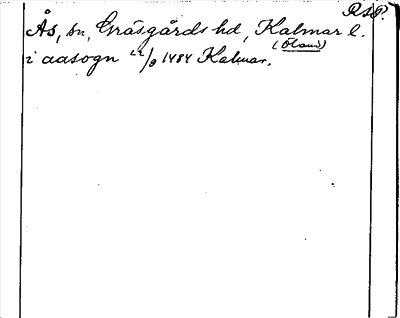 RSP.
Ås, sn, Gräsgårds hd, Kalmar l.
(Öland)
i aasogn 22/9 1484 Kalmar.